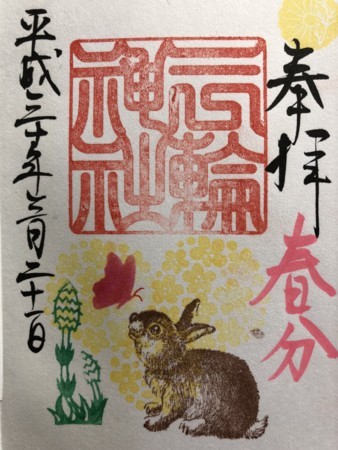 奉拝
春分
三輪神社
平成三十年三月二十一日